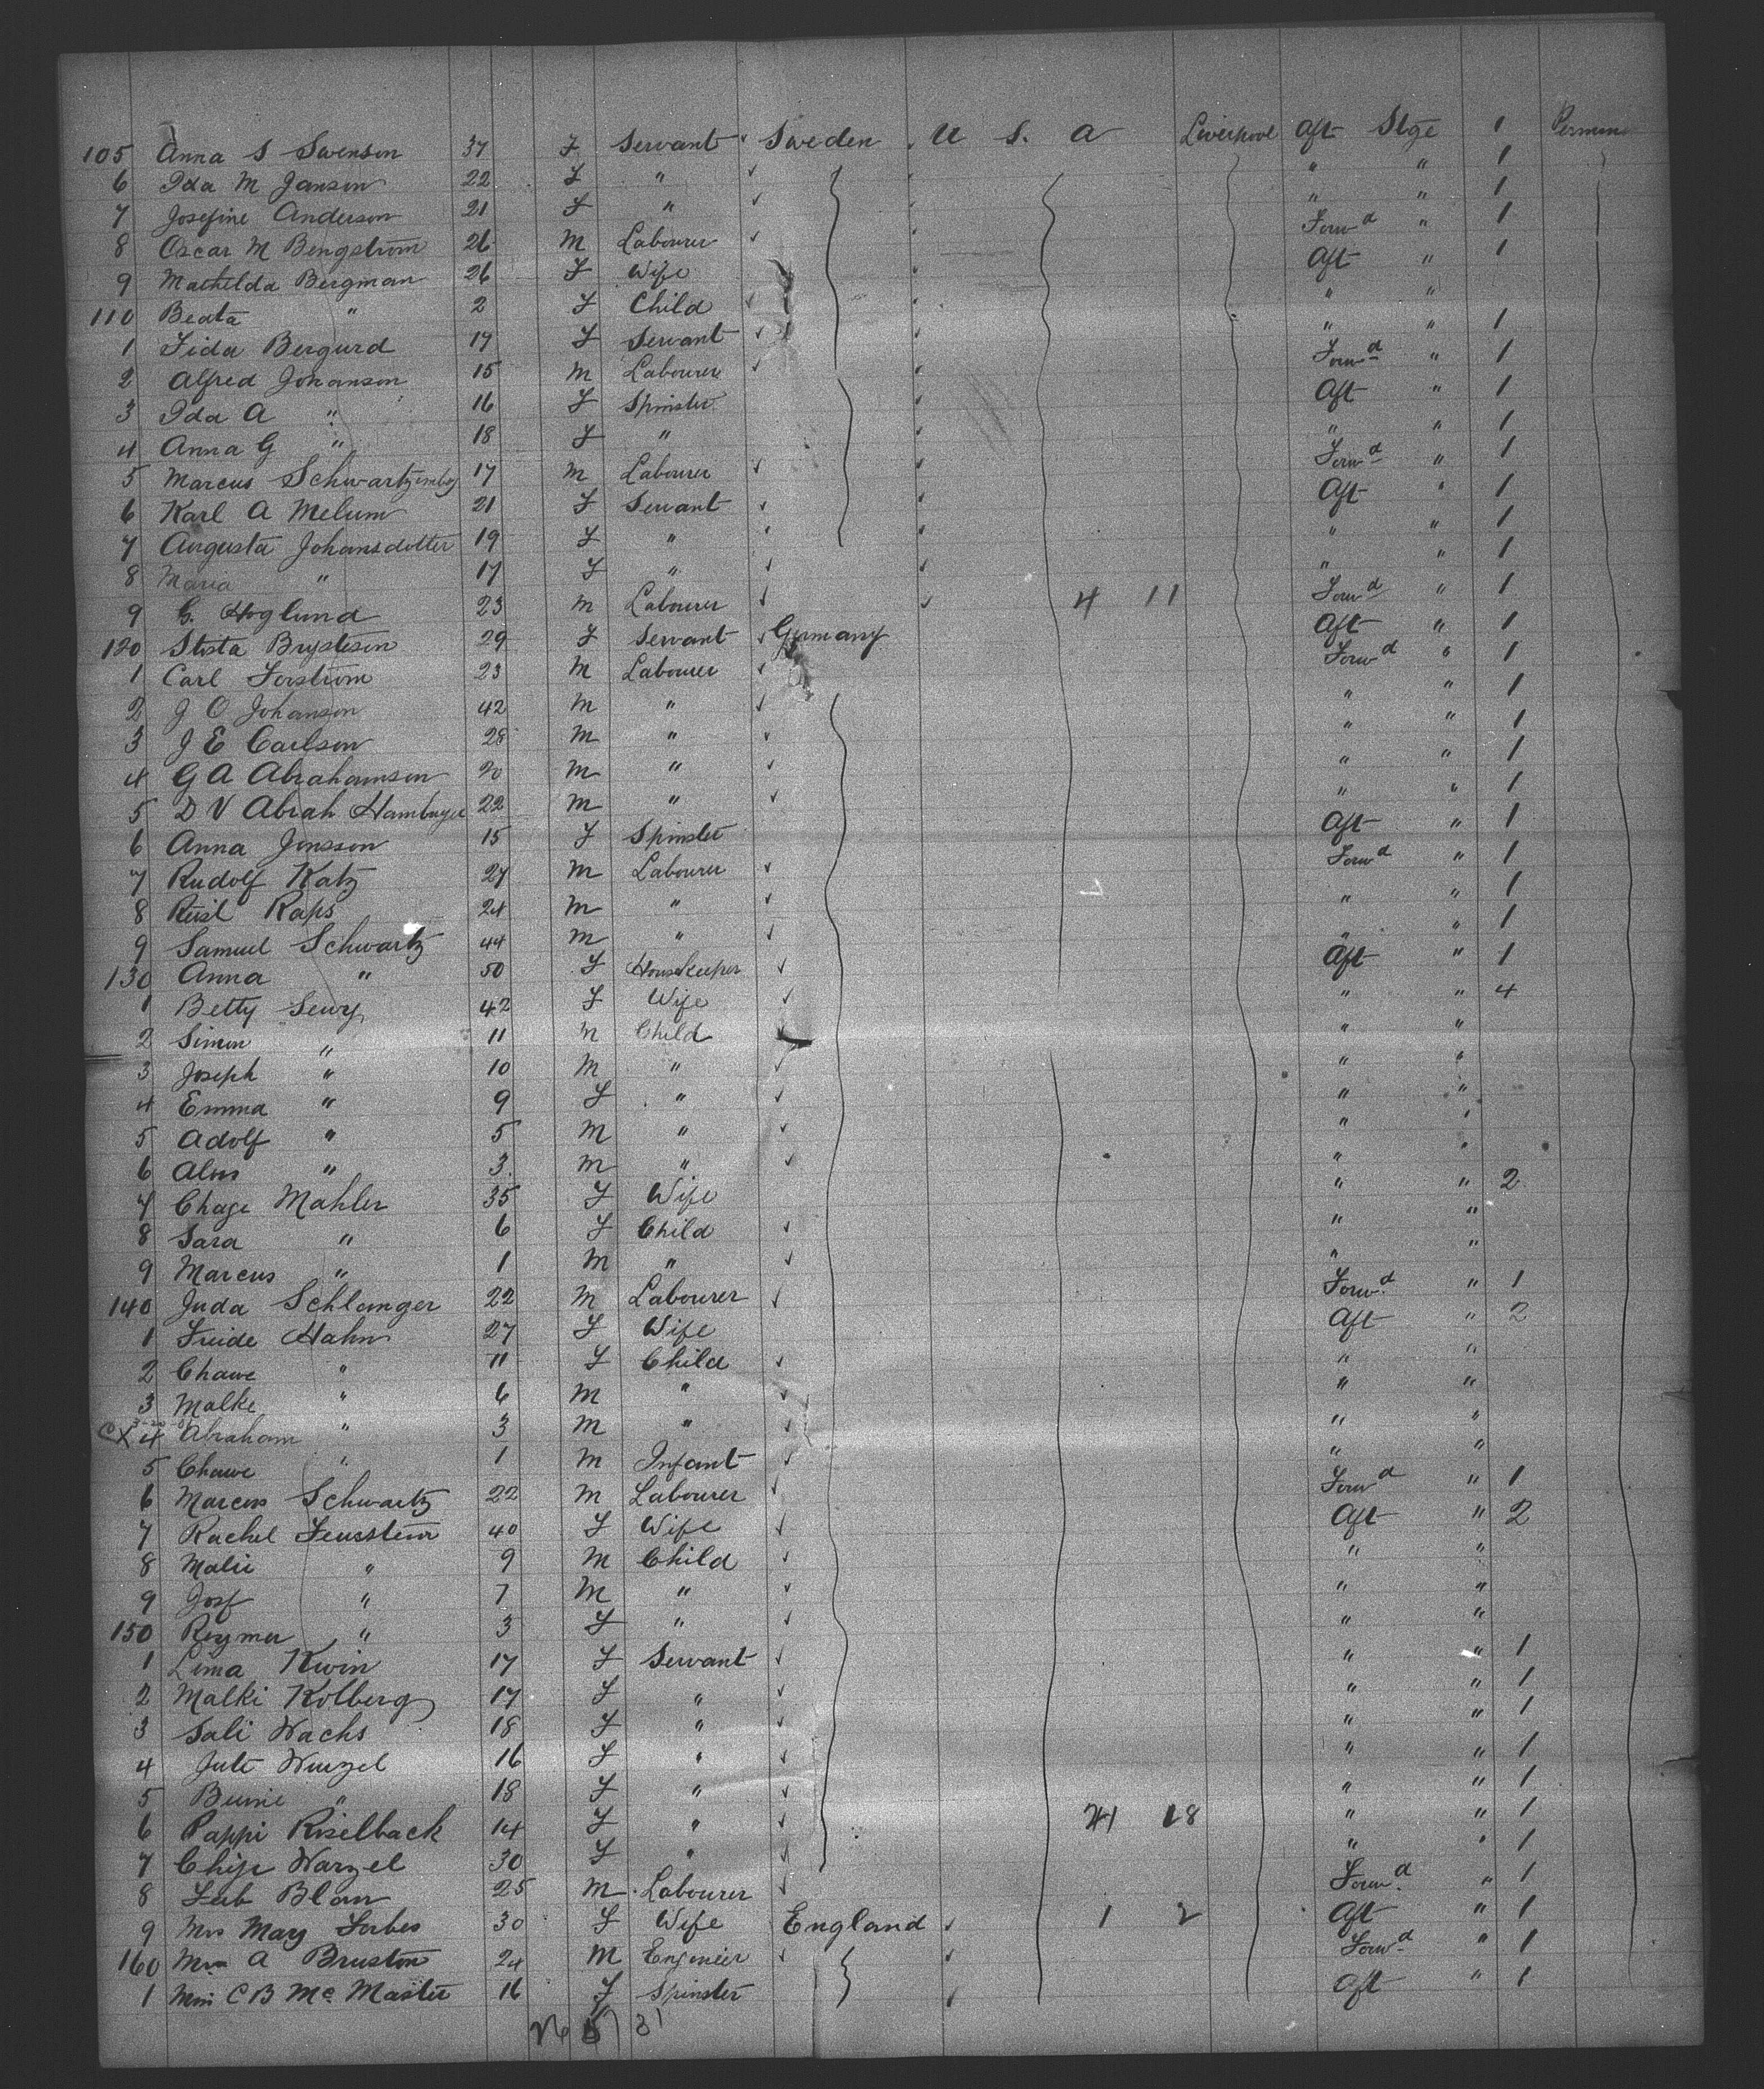 105 Anna S Swenson 37 F Servant Sweden U S. A Liverpool Aft Stge 1
6 Ida M Janson 22 F " " " 1
7 Josefine Anderson 21 F " " " 1
8 Oscar M Bengstrom 26 M Labourer Forwd " 1
9 Mathilda Bergman 26 F Wife Aft " 1
110 Beata " 2 F Child " "
1 Fida Bergurd 17 F Servant " " 1
2 Alfred Johanson 15 M Labourer Forwd " 1
3 Ida A " 16 F Spinster Aft " 1
4 Anna G " 18 F " " " 1
5 Marcus 17 M Labourer Forwd " 1
6 Karl A Melum 21 F Servant Aft " 1
7 Augusta Johansdotter 19 F " " " 1
8 Maria " 17 F " " " 1
9 G. Hoglund 23 M Labourer 4 11 Forwd " 1
120 Brysteson 29 F Servant Germany Aft " 1
1 Carl Forstrom 23 M Labourer Forwd " 1
2 J O Johanson 42 M " " " 1
3 J E Carlson 28 M " " " 1
4 G A Abrahamson 20 M " " " 1
5 D V Abrah 22 M " " " 1
6 Anna Jonsson 15 F Spinster Aft " 1
7 Rudolf Katz 27 M Labourer Forwd " 1
8 Raps 24 M " " " 1
9 Samuel Schwartz 44 M " " " 1
130 Anna " 50 F Housekeeper Aft " 1
1 Betty 42 F Wife " " 4
2 Simon " 11 M Child " "
3 Joseph " 10 M " " "
4 Emma " 9 F " " "
5 Adolf " 5 M " " "
6 " 3 M " " "
7 Chaje Mahler 35 F Wife " " 2
8 Sara " 6 F Child " "
9 Marcus " 1 M " " "
140 Juda Schlanger 22 M Labourer Forwd " 1
1 Freide Hahn 27 F Wife Aft " 2
2 Chawe " 11 F Child " "
3 Malke " 6 M " " "
4 Abraham " 3 M " " "
5 Chawe " 1 M Infant " "
6 Marcus Schwartz 22 M Labourer Forwd " 1
7 Rachel 40 F Wife Aft " 2
8 " 9 M Child " "
9 Josf " 7 M " " "
150 " 3 F " " "
1 Lima Kwin 17 F Servant " " 1
2 Malki Kolberg 17 F " " " 1
3 Sali Wachs 18 F " " " 1
4 Jute Wurzel 16 F " " " 1
5 " 18 F " " " 1
6 Pappi Riselback 14 F " 18 " " 1
7 Warzel 30 F " " " 1
8 Leib Blau 25 M Labourer Forwd " 1
9 Mrs May Forbes 30 F Wife England 1 2 Aft " 1
160 A Bruston 24 M Engineer Forwd " 1
1 Miss C B Mc Master 16 F Spinster Aft " 1